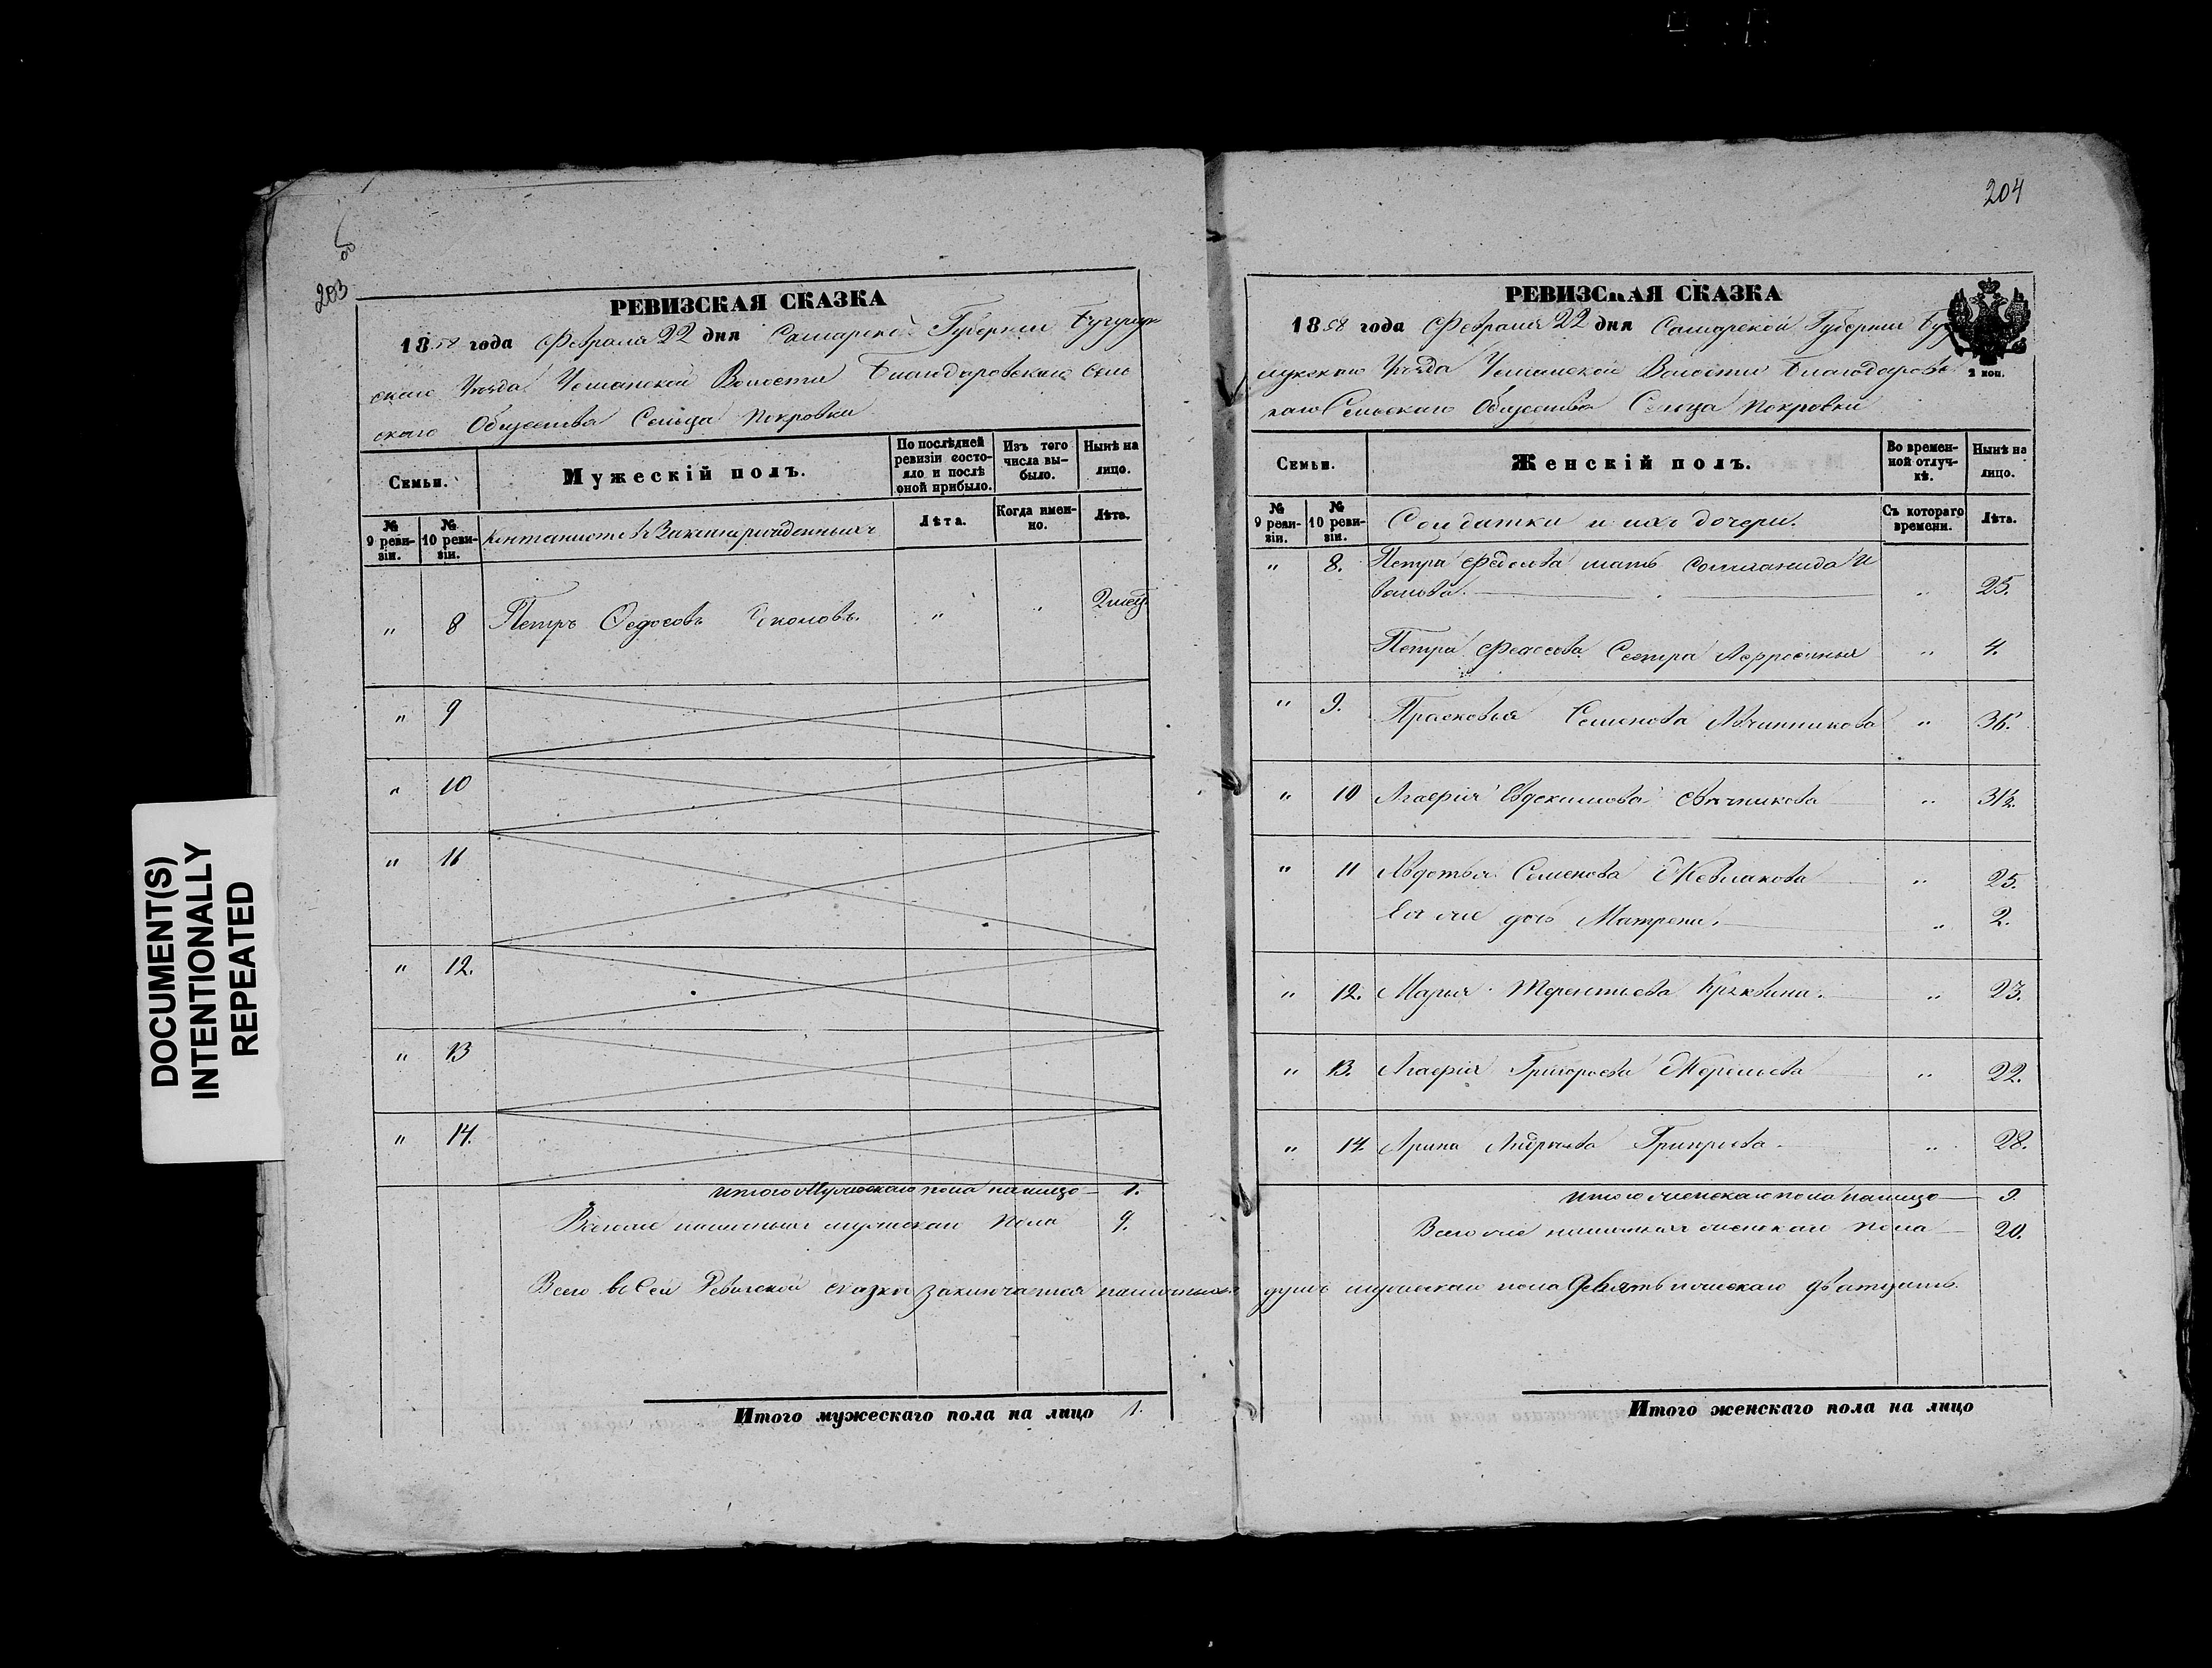 203
РЕВИЗСКАЯ СКАЗКА
1858 года Февраля 22 дня Самарской Губернии Бугурус
скаго Уѣзда Волости Благодаровскаго Сель
скаго Общества Сельца Покровки
Семьи.
Мужескій полъ.
По послѣдней ревизіи состояло и послѣ оной прибыло.
Изъ того числа выбыло.
Нынѣ на лицо.
№ 9 ревизіи.
№ 10 ревизіи.
Кантонистовъ
Лѣта.
Когда именно.
Лѣта.
" 8 Петръ Федосовъ " " 2 мец.
" 9
" 10
" 11
" 12.
" 13
" 14.
Итого Мужескаго пола налицо 1.
Всего же наличныхъ мужескаго пола 9.
Всего въ Сей Ревизской сказки заключается наличныхъ душъ мужескаго пола Девять женскаго дватцать.
Итого мужескаго пола на лицо 1.
204
РЕВИЗСКАЯ СКАЗКА
1858 года Февраля 22 дня Самарской Губернии Бугу
2 коп.
Уѣзда Волости Благодаровс
каго Сельскаго Общества Сельца Покровки
Семьи.
Женскій полъ.
Во временной отлучкѣ.
Нынѣ на лицо.
№ 9 ревизіи.
№ 10 ревизіи.
Солдатки и ихъ дочери.
Съ котораго времени.
Лѣта.
" 8. Петра Федосова мать Соломанида И
ванова. " 25.
Петра Федосова Сестра Афросинья " 4.
" 9. Прасковья Семенова Авчинникова " 36.
" 10 Агафія Евдокимова " 
" 11 Авдотья Семенова " 25.
Ея же дочь Матрена. " 2.
" 12. Марья Терентьева " 23.
" 13. Агафія Григорьева " 22.
" 14. Арина Андреева Григорьева " 28.
Итого женскаго пола налицо 9.
Всего же наличныхъ женскаго пола 20.
Итого женскаго пола на лицо
DOCUMENT(S)
INTENTIONALLY
REPEATED